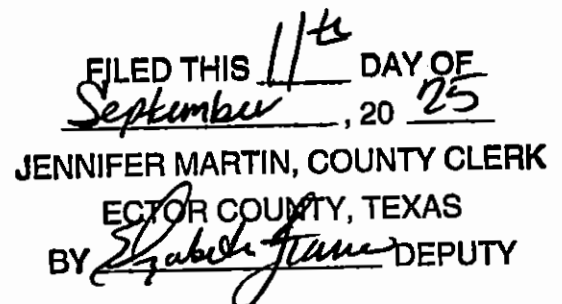 FILED THIS 11th DAY OF
September, 20 25
JENNIFER MARTIN, COUNTY CLERK
ECTOR COUNTY, TEXAS
BY Elizabeth DEPUTY